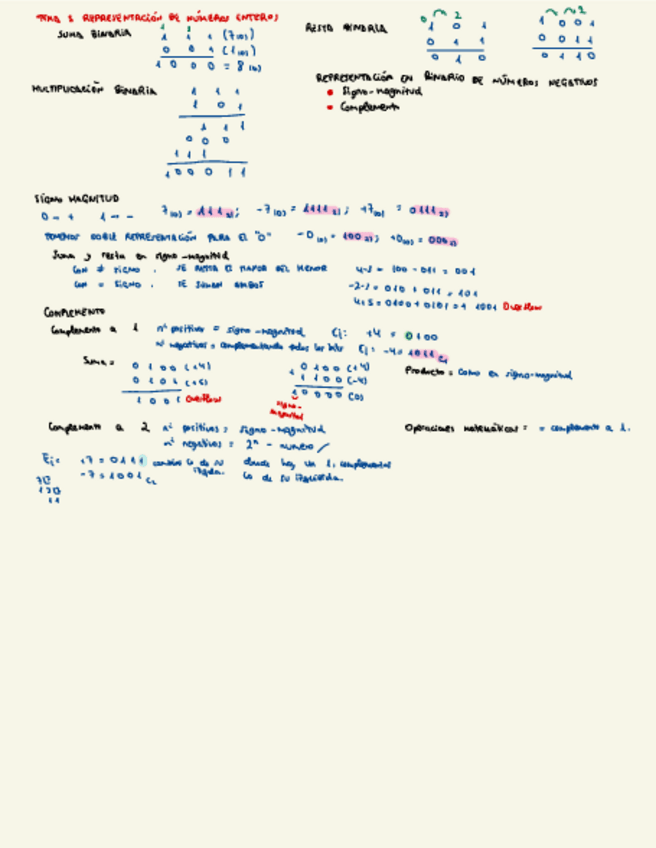 TEMA 1 REPRESENTACIÓN DE NÚMEROS ENTEROS
SUMA BINARIA
1 1 1 (7(10)
0 0 1 (1(10)
1 0 0 0 = 8(10)
RESTA BINARIA
0 2
1 0 1
0 1 1
0 1 0
2
1 0 0 1
0 0 1 1
0 1 1 0
MULTIPLICACIÓN BINARIA
1 1 1
1 0 1
1 1 1
0 0 0
1 1 1
1 0 0 0 1 1
REPRESENTACIÓN EN BINARIO DE NÚMEROS NEGATIVOS
• Signo-magnitud
• Complemento
SIGNO MAGNITUD
0 → + 1 → -
7(10) = 111(2); -7(10) = 1111(2); +7(10) = 0111(2)
TENEMOS DOBLE REPRESENTACIÓN PARA EL "0" -0(10) = 100(2); +0(10) = 000(2)
Suma y resta en signo-magnitud
CON ≠ SIGNO. SE RESTA EL MAYOR DEL MENOR
CON = SIGNO. SE SUMAN AMBOS
4-3 = 100 - 011 = 001
-2-3 = 010 + 011 = 101
4+5 = 0100 + 0101 = 1001 Overflow
COMPLEMENTO
Complemento a 1 nº positivos = signo-magnitud Ej: +4 = 0100
nº negativos = complementando todos los bits Ej: -4 = 1011 C1
Suma =
0 1 0 0 (+4)
0 1 0 1 (+5)
1 0 0 1 Overflow
0 1 0 0 (+4)
1 1 0 0 (-4)
1 0 0 0 0 (0)
signo-magnitud
Producto = Como en signo-magnitud
Complemento a 2 nº positivos = signo-magnitud
nº negativos = 2ⁿ - número
Operaciones matemáticas = = complemento a 1.
Ej: +7 = 0111
-7 = 1001 C2
donde hay un 1, complementas
lo de su izquierda.